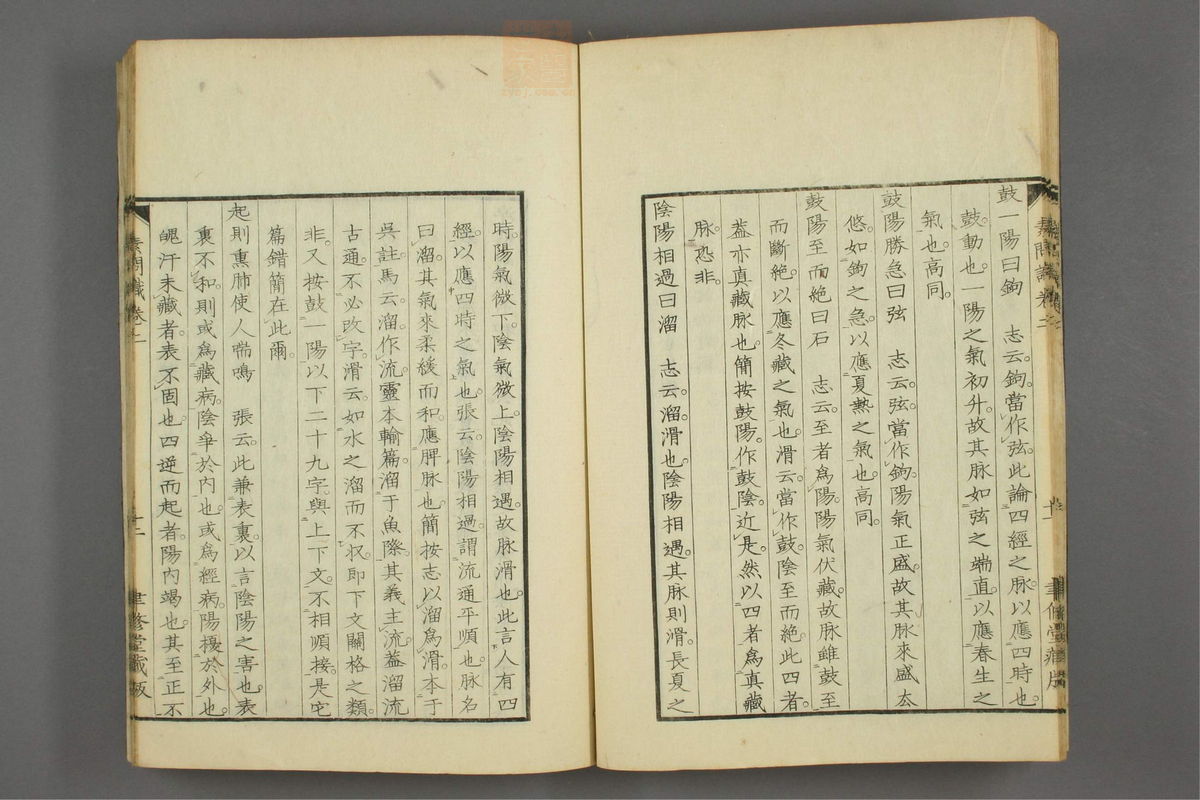 鼓一陽曰鉤　志云。鉤。當作弦。此論四經之脉。以應四時也。
鼓動也。一陽之氣初升。故其脉如弦之端直。以應春生之
氣也。高同。
鼓陽勝急曰弦　志云。弦。當作鉤。陽氣正盛。故其脉來盛去
悠。如鉤之急。以應夏熱之氣也。高同。
鼓陽至而絶曰石　志云。至者爲陽。陽氣伏藏。故脉雖鼓至
而斷絶。以應冬藏之氣也。滑云。當作鼓陰至而絶。此四者。
蓋亦真藏脉也。簡按鼓陽。作鼓陰。近是。然以四者爲真藏
脉。恐非。
陰陽相過曰溜　志云。溜。滑也。陰陽相遇。其脉則滑。長夏之
素問識卷二
十一
聿修堂藏版
時。陽氣微下。陰氣微上。陰陽相遇。故脉滑也。此言人有四
經。以應四時之氣也。張云。陰陽相過。謂流通平順也。脉名
曰溜。其氣來柔緩而和。應脾脉也。簡按志以溜爲滑。本于
吳註。馬云。溜。作流。靈本輸篇。溜于魚際。其義主流。蓋溜流
古通。不必改字。滑云。如水之溜而不収。即下文關格之類。
非。又按鼓一陽以下二十九字。與上下文。不相順接。是它
篇錯簡在此爾。
起則熏肺使人喘鳴　張云。此兼表裏。以言陰陽之害也。表
裏不和。則或爲藏病。陰爭於内也。或爲經病。陽擾於外也。
魄汗未藏者。表不固也。四逆而起者。陽内竭也。其至正不
素問識卷二
十二
聿修堂藏版